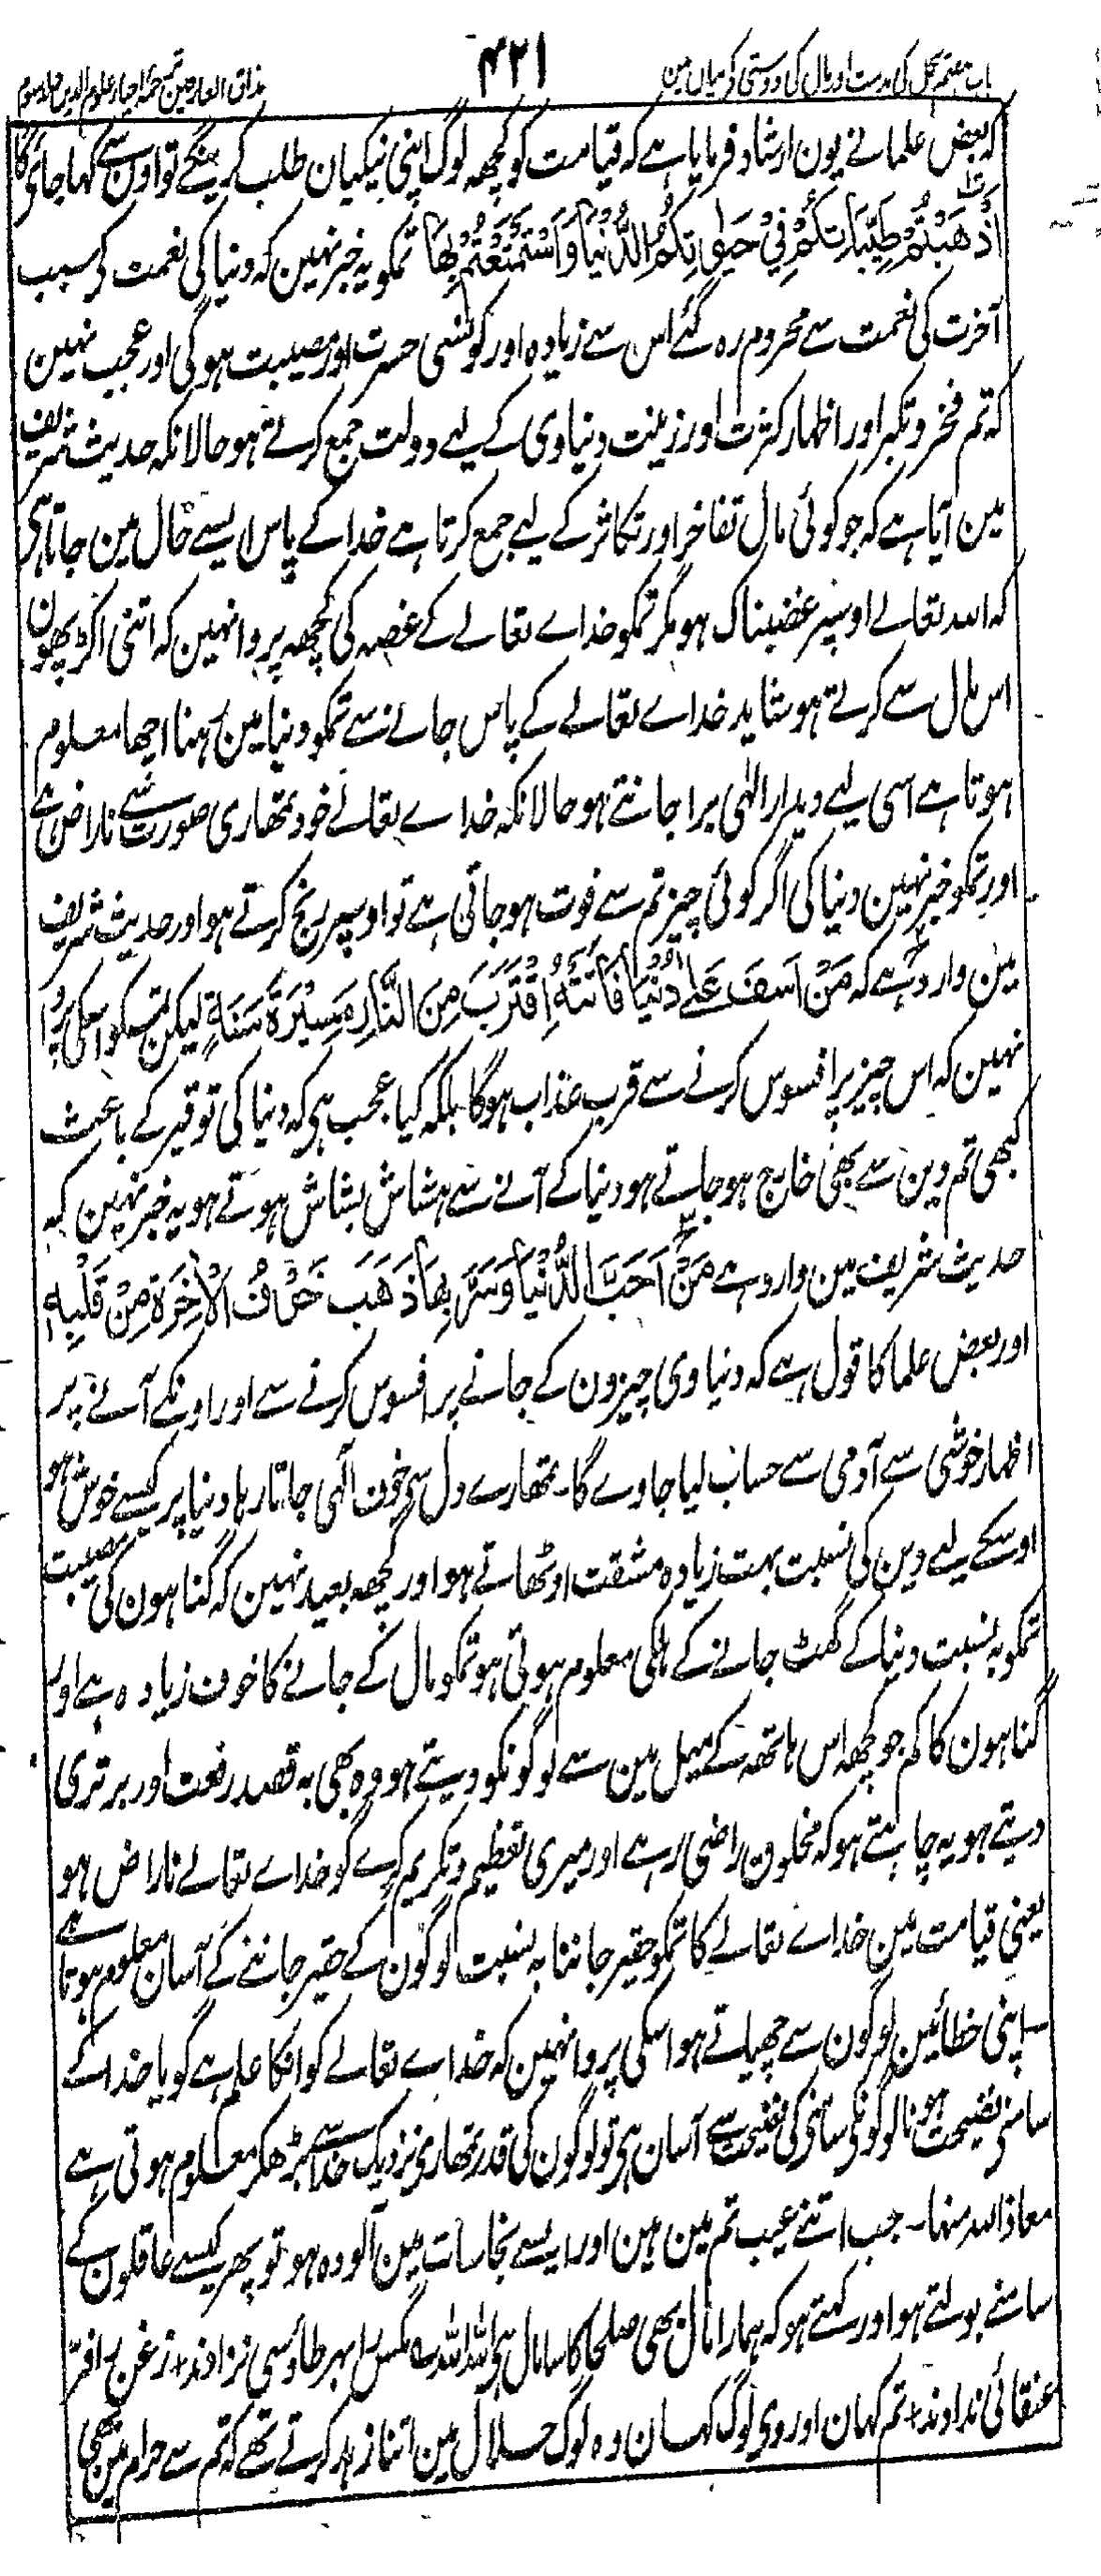 باب ہفتم بخل کی مذمت اور مال کی دوستی کے بیان مین
۴۲۱
مذاق العارفین ترجمۂ احیاء علوم الدین جلد سوم
کہ بعض علما نے یون ارشاد فرمایا ہے کہ قیامت کو کچھہ لوگ اپنی نیکیان طلب کرینگے تو اون سے کہا جائے گا
اَذْهَبْتُمْ طَيِّبَاتِكُمْ فِيْ حَيٰوتِكُمُ الدُّنْيَا وَاسْتَمْتَعْتُمْ بِهَا تمکو یہ خبر نہین کہ دنیا کی نعمت کے سبب
آخرت کی نعمت سے محروم رہ گئے اس سے زیادہ اور کونسی حسرت اور مصیبت ہو گی اور عجب نہین
کہ تم فخر و تکبر اور اظہار کثرت اور زینت دنیاوی کے لیے دولت جمع کرتے ہو حالانکہ حدیث شریف
مین آیا ہے کہ جو کوئی مال تفاخر اور تکاثر کے لیے جمع کرتا ہے خدا کے پاس ایسے حال مین جاتا ہی
کہ اللہ تعالے اوسپر غضبناک ہو مگر تمکو خداے تعالے کے غصہ کی کچھہ پروا نہین کہ اتنی اکڑ پھون
اس مال سے کرتے ہو شاید خداے تعالے کے پاس جانے سے تمکو دنیا مین رہنا اچھا معلوم
ہوتا ہے اسی لیے دیدار الٰہی برا جانتے ہو حالانکہ خداے تعالے خود تمھاری صورت سے ناراض ہے
اور تمکو خبر نہین دنیا کی اگر کوئی چیز تم سے فوت ہو جاتی ہے تو اوسپر رنج کرتے ہو اور حدیث شریف
مین وارد ہے کہ مَنْ اَسِفَ عَلٰے دُنْيَا فَاتَتْهُ اِقْتَرَبَ مِنَ النَّارِ مَسِيْرَةَ سَنَةٍ لیکن تمکو اسکی پروا
نہین کہ اس چیز پر افسوس کرنے سے قرب عذاب ہوگا بلکہ کیا عجب ہی کہ دنیا کی توقیر کے باعث
کبھی تم دین سے بھی خارج ہو جاتے ہو دنیا کے آنے سے ہشاش بشاش ہوتے ہو یہ خبر نہین کہ
حدیث شریف مین وارد ہے مَنْ اَحَبَّ الدُّنْيَا وَسَرَّ بِهَا ذَهَبَ خَوْفُ الْاٰخِرَةِ مِنْ قَلْبِهٖ
اور بعض علما کا قول ہے کہ دنیاوی چیزون کے جانے پر افسوس کرنے سے اور اونکے آنے پر
اظہار خوشی سے آدمی سے حساب لیا جاوے گا۔ تمھارے دل سے خوف الٰہی جاتا رہا دنیا پر کیسے خوش ہو
اوسکے لیے دین کی نسبت بہت زیادہ مشقت اوٹھاتے ہو اور کچھہ بعید نہین کہ گناہون کی مصیبت
تمکو بہ نسبت دنیا کے گھٹ جانے کے ہلکی معلوم ہوتی ہو تمکو مال کے جانے کا خوف زیادہ ہے اور
گناہون کا کم جو کچھہ اس ہاتھہ کے میل مین سے لوگونکو دیتے ہو وہ بھی بہ قصد رفعت اور برتری
دیتے ہو یہ چاہتے ہو کہ مخلوق راضی رہے اور میری تعظیم و تکریم کرے گو خداے تعالے ناراض ہو
یعنی قیامت مین خداے تعالے کا تمکو حقیر جاننا بہ نسبت لوگون کے حقیر جاننے کے آسان معلوم ہوتا ہے
اپنی خطائین لوگون سے چھپاتے ہو اسکی پروا نہین کہ خداے تعالے کو انکا علم ہے گویا خدا کے
سامنے فضیحت ہونا لوگونکے سامنے کی فضیحت سے آسان ہی تو لوگون کی قدر تمھاری نزدیک خدا سے بڑھکر معلوم ہوتی ہے
معاذ اللہ منہا۔ جب اتنے عیب تم مین ہین اور ایسے نجاسات مین آلودہ ہو تو پھر کیسے عاقلون کے
سامنے بولتے ہو اور کہتے ہو کہ ہمارا مال بھی صلحا کا سا مال ہی اللہ اللہ مگس را پر طاؤسی نزادند + زغن را فر
عنقائی ندادند + تم کہان اور وی لوگ کہان وہ لوگ حلال مین اتنا زہد کرتے تھے کہ تم سے حرام مین بھی